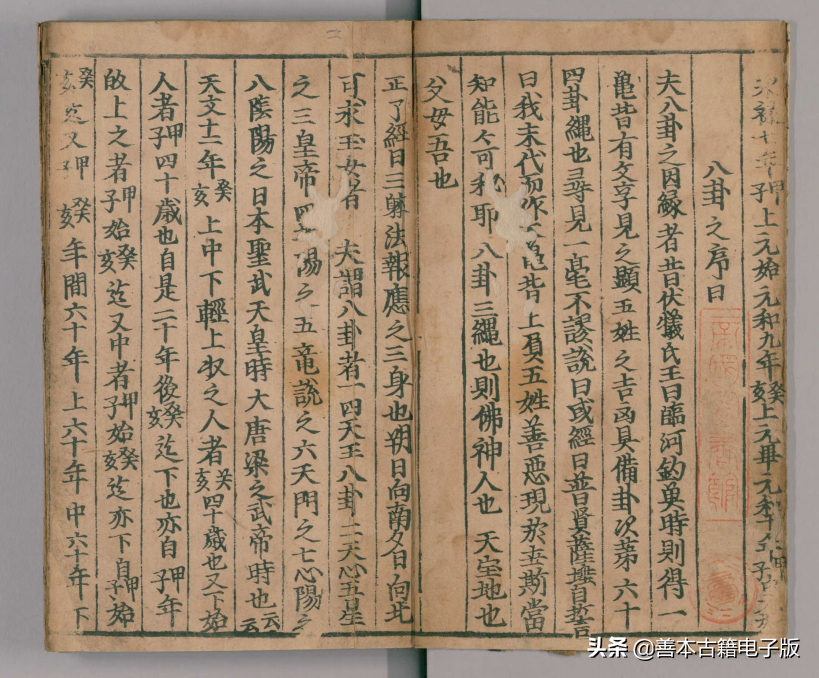 上元始元和九年癸亥上元畢元和
八卦之序曰
夫八卦之因縁者昔伏犠氏王曰臨河釣魚時則得一
亀昔有文字見之顕五姓之吉凶具備卦次第六十
四卦縄也尋見一亳不謬説曰或經曰普賢薩埵自誓言
曰我末代而昔上負五姓善悪現於斯當
知能今可耶八卦三縄也則佛神人也天室地也
父母吾也
正了經曰三躰法報應之三身也朔日向南夕日向北
可求玉女者夫謂八卦者一四天王八卦二天心五星
之三皇帝四陽之五竜説之六天門之七心陽之
八陰陽之日本聖武天皇時大唐梁之武帝時也云云
天文十二年癸亥上中下輕上以之人者癸亥四十歳也又下始
人者甲子四十歳也自是二十年後癸亥迄下也亦自甲子年
故上之者甲子始癸亥迄又中者甲子始癸亥迄亦下自甲子始
癸亥迄又甲癸亥年間六十年上六十年中六十年下
头条 @善本古籍电子版